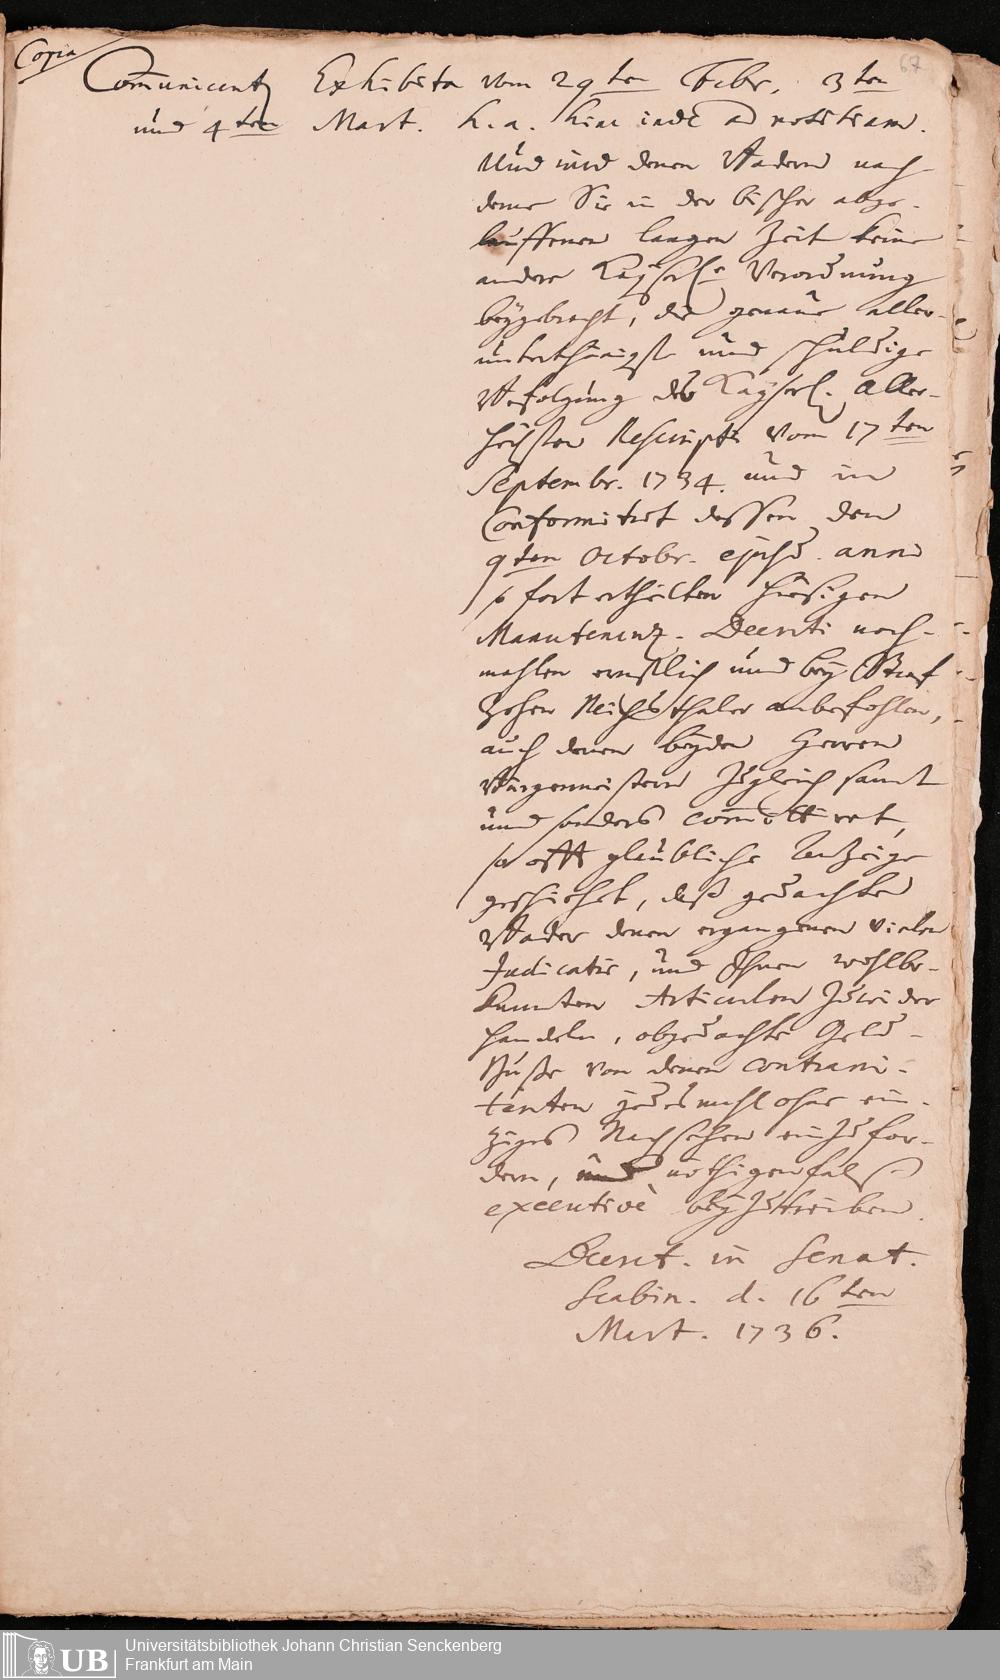 67
Copia
Com̄unicent Exhibita vom 29ten Febr. 3ten
und 4ten Mart. h. a. hinc inde ad notitiam.
Und wird denen Badern nach-
deme Sie in der bißher abge-
lauffenen langen Zeit keine
andere Kayserl. Verordnung
beygebracht, die genaue aller-
unterthänigst und schuldige
Befolgung des Kayserl. Aller-
höchsten Rescripti vom 17ten
Septembr. 1734. und in
Conformitæt dessen den
9ten Octobr. ejusd. anni
sofort ertheilten hiesigen
Manutenenz-Decreti noch-
mahlen ernstlich und bey Straf
Zehen Reichsthaler anbefohlen,
auch denen beyden Herren
Bürgermeistern zugleich samt
und sonders com̄ittiret,
so offt glaubliche Anzeige
geschiehet, daß gedachte
Bader denen ergangenen vielen
Judicatis, und Ihnen wohlbe-
kannten Articulen zuwider
handeln, obgedachte Geld-
Buße von denen contraveni-
tenten jedesmahl ohne ein-
ziges Nachsehen einzufor-
dern, und nöthigenfals
executivè beyzutreiben.
Decret. in Senat.
Scabin. d. 16ten
Mart. 1736.
UB
Universitätsbibliothek Johann Christian Senckenberg
Frankfurt am Main